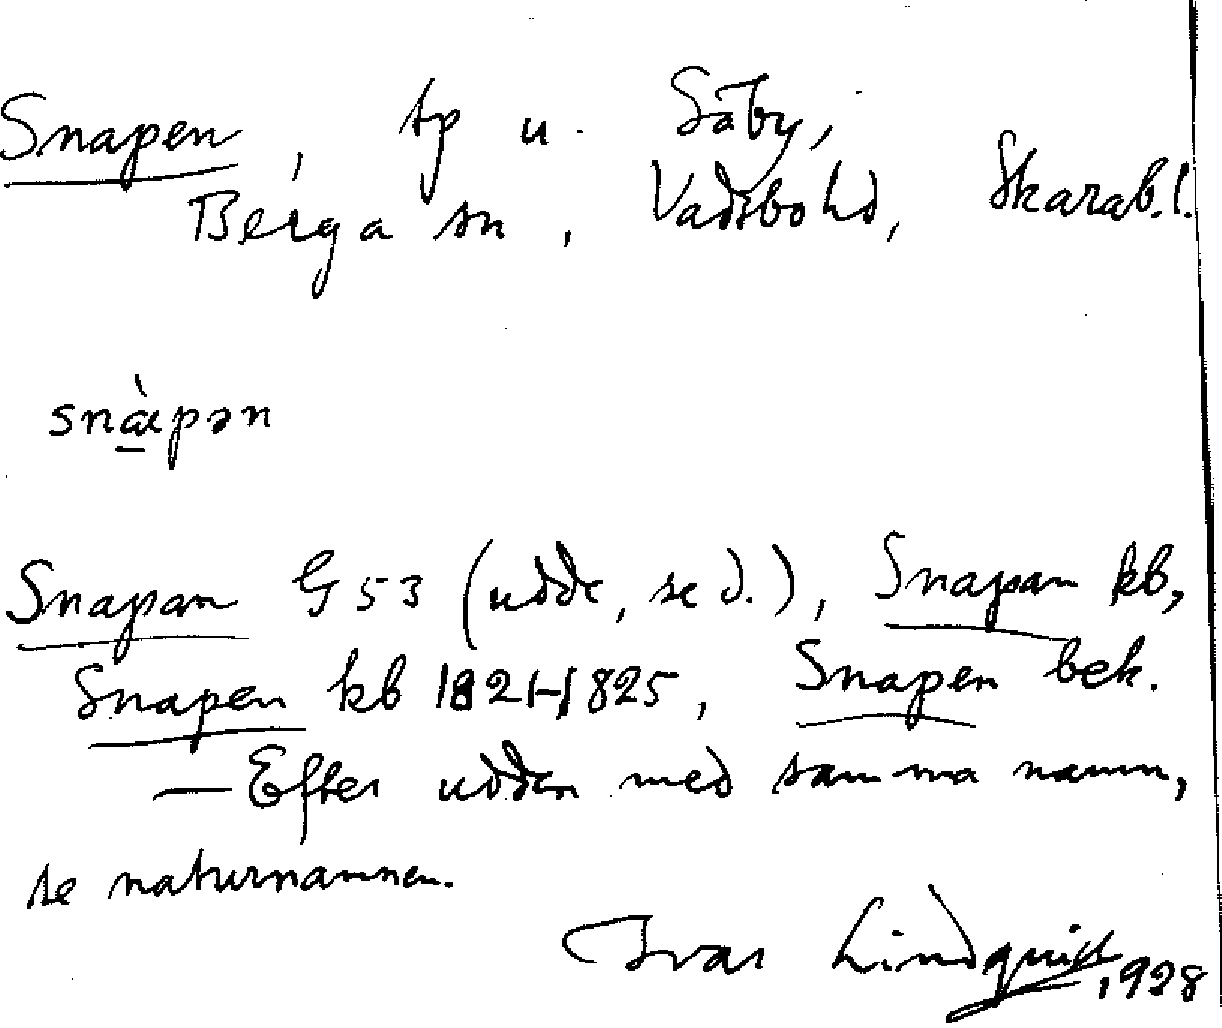 Snapen, tp u. Säby,
Berga sn, Vadsbo hd, Skarab.l.
snàpən
Snapan G 53 (udde, se d.), Snapan kb,
Snapen kb 1821-1825, Snapen bek.
— Efter udden med samma namn,
se naturnamnen.
Ivar Lindquist, 1928